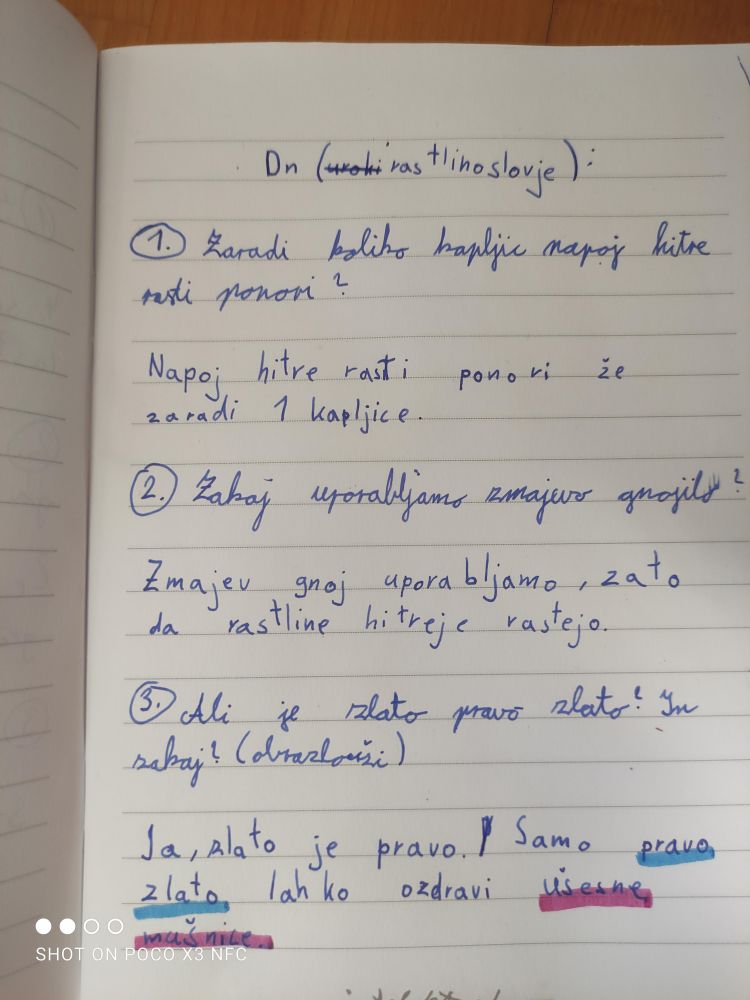 Dn (uroki rastlinoslovje):
1. Zaradi koliko kapljic napoj hitre
rasti ponori?
Napoj hitre rasti ponori že
zaradi 1 kapljice.
2. Zakaj uporabljamo zmajevo gnojilo?
Zmajev gnoj uporabljamo, zato
da rastline hitreje rastejo.
3. Ali je zlato pravo zlato? In
zakaj? (obrazloži)
Ja, zlato je pravo. Samo pravo
zlato lahko ozdravi ušesne
mušnice.
SHOT ON POCO X3 NFC